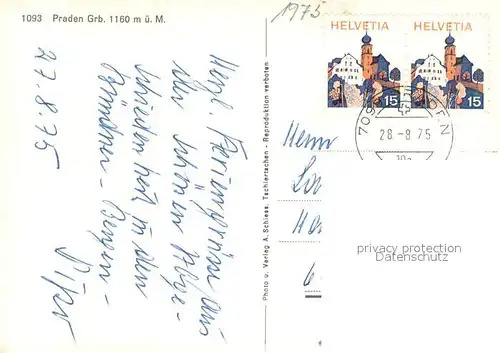 1093 Praden Grb. 1160 m ü. M.
1975
HELVETIA HELVETIA
15 15
709
28.-8.75
27.8.75
Herzl. Feriengrüsse aus
der schönen Abge-
schiedenheit in den
Bündner-Bergen-
Photo u. Verlag A. Schless, Tschiertschen - Reproduktion verboten
Herrn
privacy protection
Datenschutz